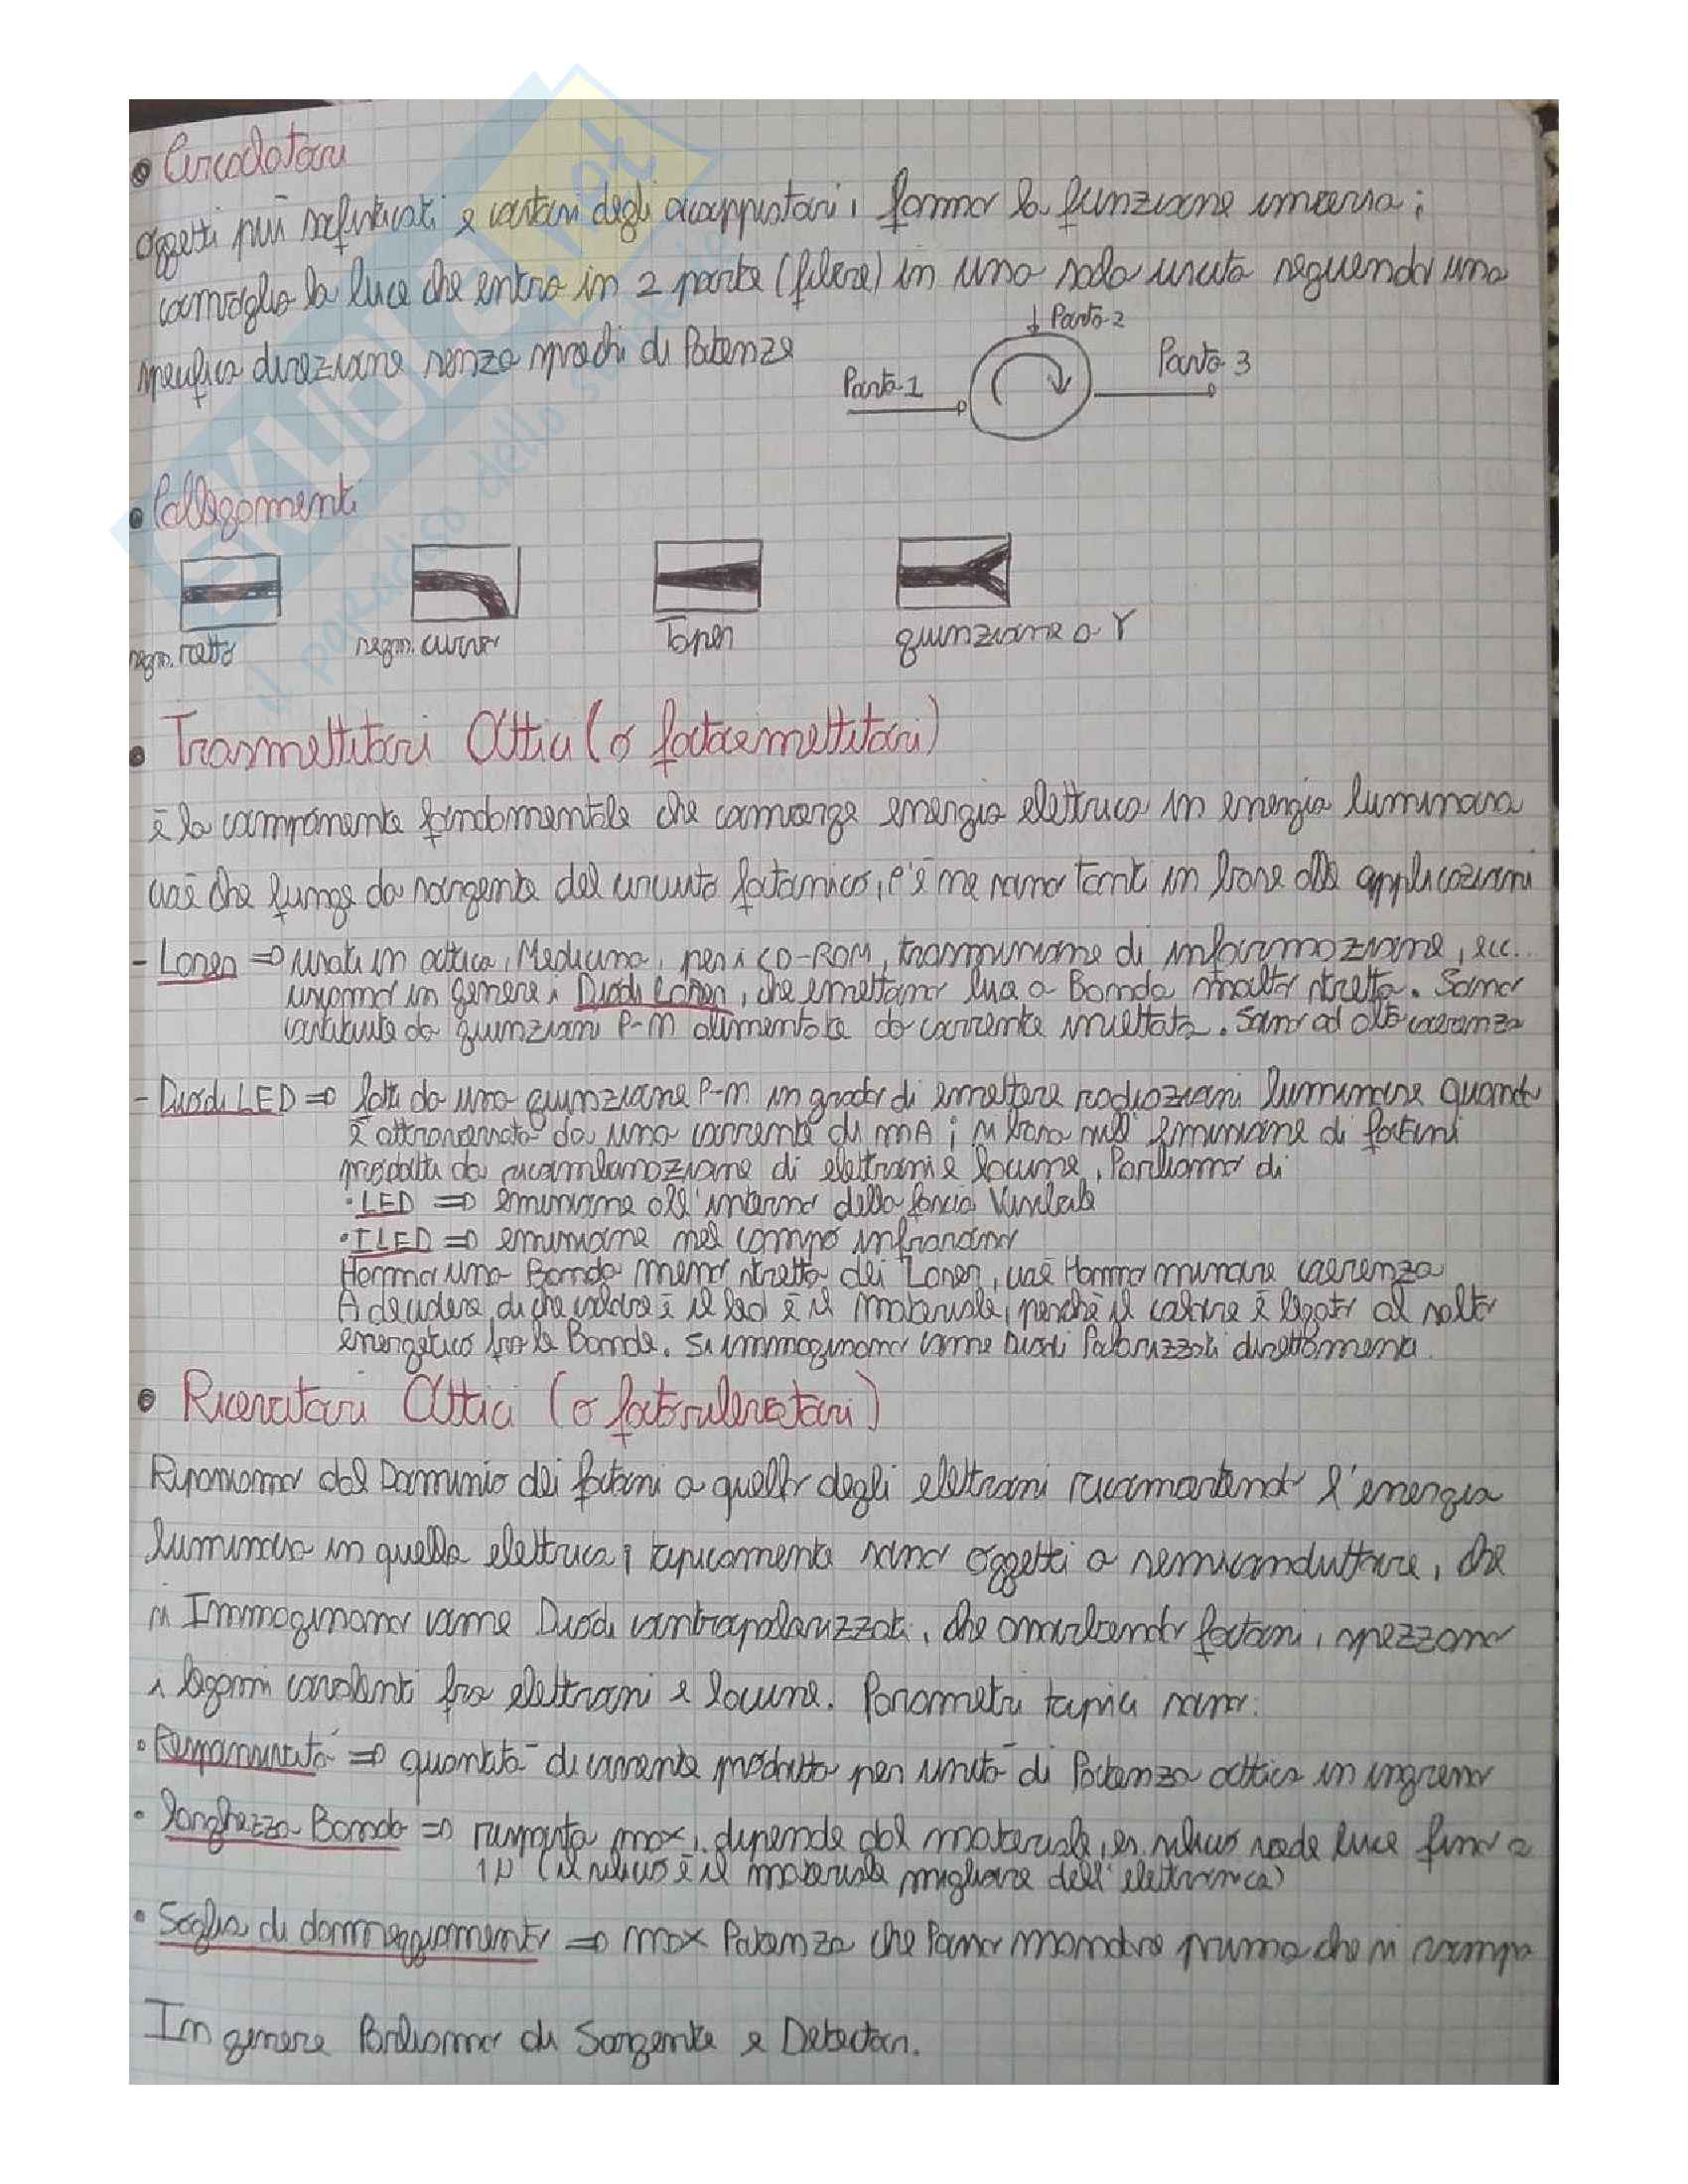 • Circolatori
oggetti più sofisticati e costosi degli accoppiatori, fanno la funzione inversa;
convoglia la luce che entra in 2 porte (filere) in una sola uscita seguendo una
specifica direzione senza sprechi di Potenze
Porta 2
Porta 1
Porta 3
• Collegamenti
segm. retto
segm. curvo
Taper
giunzione a Y
• Trasmettitori Ottici (o fotoemettitori)
è la componente fondamentale che converge energia elettrica in energia luminosa
cioè che funge da sorgente del circuito fotonico, c'è ne sono tanti in base alle applicazioni
- Laser => usati in ottica, Medicina, per i CD-ROM, trasmissione di informazione, ecc..
usiamo in genere i Diodi Laser, che emettono luce a Banda molto stretta. Sono
costituite da giunzioni P-N alimentate da corrente iniettata. Sono ad alta coerenza
- Diodi LED => fatti da una giunzione P-N in grado di emettere radiazioni luminose quando
è attraversata da una corrente di mA; si basa sull' emissione di fotoni
prodotti da ricombinazione di elettroni e lacune. Parliamo di
• LED => emissione all'interno della fascia Visibile
• ILED => emissione nel campo infrarosso
Hanno una Banda meno stretta dei Laser, cioè Hanno minore coerenza
A decidere di che colore è il led è il materiale, perché il colore è legato al salto
energetico fra le Bande. Si immaginano come Diodi Polarizzati direttamente.
• Ricevitori Ottici (o fotorilevatori)
Ripassiamo dal Dominio dei fotoni a quello degli elettroni riconvertendo l'energia
luminosa in quella elettrica; tipicamente sono oggetti a semiconduttore, che
si Immaginano come Diodi contropolarizzati, che assorbendo fotoni, spezzano
i legami covalenti fra elettroni e lacune. Parametri tipici sono:
• Responsività => quantità di corrente prodotta per unità di Potenza ottica in ingresso
• larghezza Banda => risposta max, dipende dal materiale, es. silicio vede luce fino a
1µ (il silicio è il materiale migliore dell'elettronica)
• Soglia di danneggiamento => max Potenza che Posso mandare prima che si rompa
In genere Parliamo di Sorgente e Detector.
SKUOLA.net
il paradiso dello studente